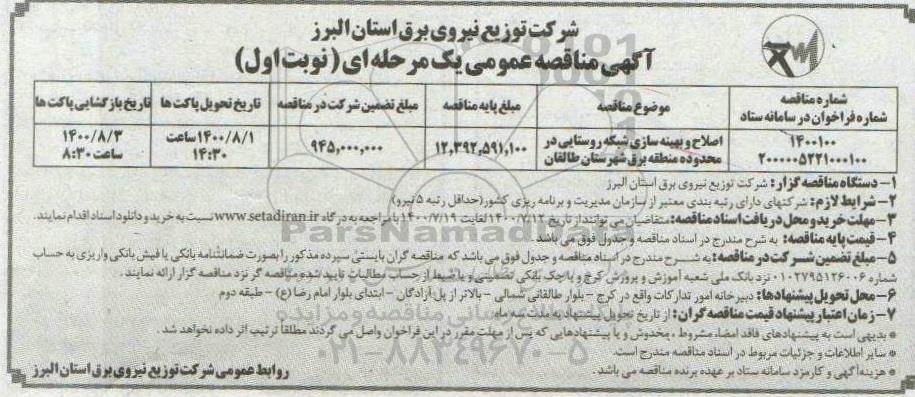 شرکت توزیع نیروی برق استان البرز
آگهی مناقصه عمومی یک مرحله ای (نوبت اول)
شماره مناقصه
شماره فراخوان در سامانه ستاد
موضوع مناقصه
مبلغ پایه مناقصه
مبلغ تضمین شرکت در مناقصه
تاریخ تحویل پاکت ها
تاریخ بازگشایی پاکت ها
۱۴۰۰۱۰۰
۲۰۰۰۰۰۵۲۲۱۰۰۰۱۰۰
اصلاح و بهینه سازی شبکه روستایی در
محدوده منطقه برق شهرستان طالقان
۱۲,۳۹۲,۵۹۱,۱۰۰
۹۴۵,۰۰۰,۰۰۰
۱۴۰۰/۸/۱ ساعت
۱۴:۳۰
۱۴۰۰/۸/۳
ساعت ۸:۳۰
۱- دستگاه مناقصه گزار: شرکت توزیع نیروی برق استان البرز
۲- شرایط لازم: شرکتهای دارای رتبه بندی معتبر از سازمان مدیریت و برنامه ریزی کشور(حداقل رتبه ۵ نیرو)
۳- مهلت خرید و محل دریافت اسناد مناقصه: متقاضیان می توانند از تاریخ ۱۴۰۰/۷/۱۲ لغایت ۱۴۰۰/۷/۱۹ با مراجعه به درگاه www.setadiran.ir نسبت به خرید و دانلود اسناد اقدام نمایند.
۴- قیمت پایه مناقصه: به شرح مندرج در اسناد مناقصه و جدول فوق می باشد.
۵- مبلغ تضمین شرکت در مناقصه: به شرح مندرج در اسناد مناقصه و جدول فوق می باشد که مناقصه گران بایستی سپرده مذکور را بصورت ضمانتنامه بانکی یا فیش بانکی واریزی به حساب
شماره ۰۱۰۲۷۹۵۱۲۶۰۰۶ نزد بانک ملی شعبه آموزش و پرورش کرج و یا چک بانکی تضمینی و یا ضبط از حساب مطالبات تایید شده مناقصه گر نزد مناقصه گزار ارائه نمایند.
۶- محل تحویل پیشنهادها: دبیرخانه امور تدارکات واقع در کرج - بلوار طالقانی شمالی - بالاتر از پل آزادگان - ابتدای بلوار امام رضا (ع) - طبقه دوم
۷- زمان اعتبار پیشنهاد قیمت مناقصه گران: از تاریخ تحویل پیشنهاد به مدت سه ماه
* بدیهی است به پیشنهادهای فاقد امضاء، مشروط، مخدوش و یا پیشنهادهایی که پس از مهلت مقرر در این فراخوان واصل می گردند مطلقاً ترتیب اثر داده نخواهد شد.
* سایر اطلاعات و جزئیات مربوط در اسناد مناقصه مندرج است.
* هزینه آگهی و کارمزد سامانه ستاد بر عهده برنده مناقصه می باشد.
روابط عمومی شرکت توزیع نیروی برق استان البرز
ParsNamadData
۰۲۱-۸۸۳۴۹۶۷۰-۵